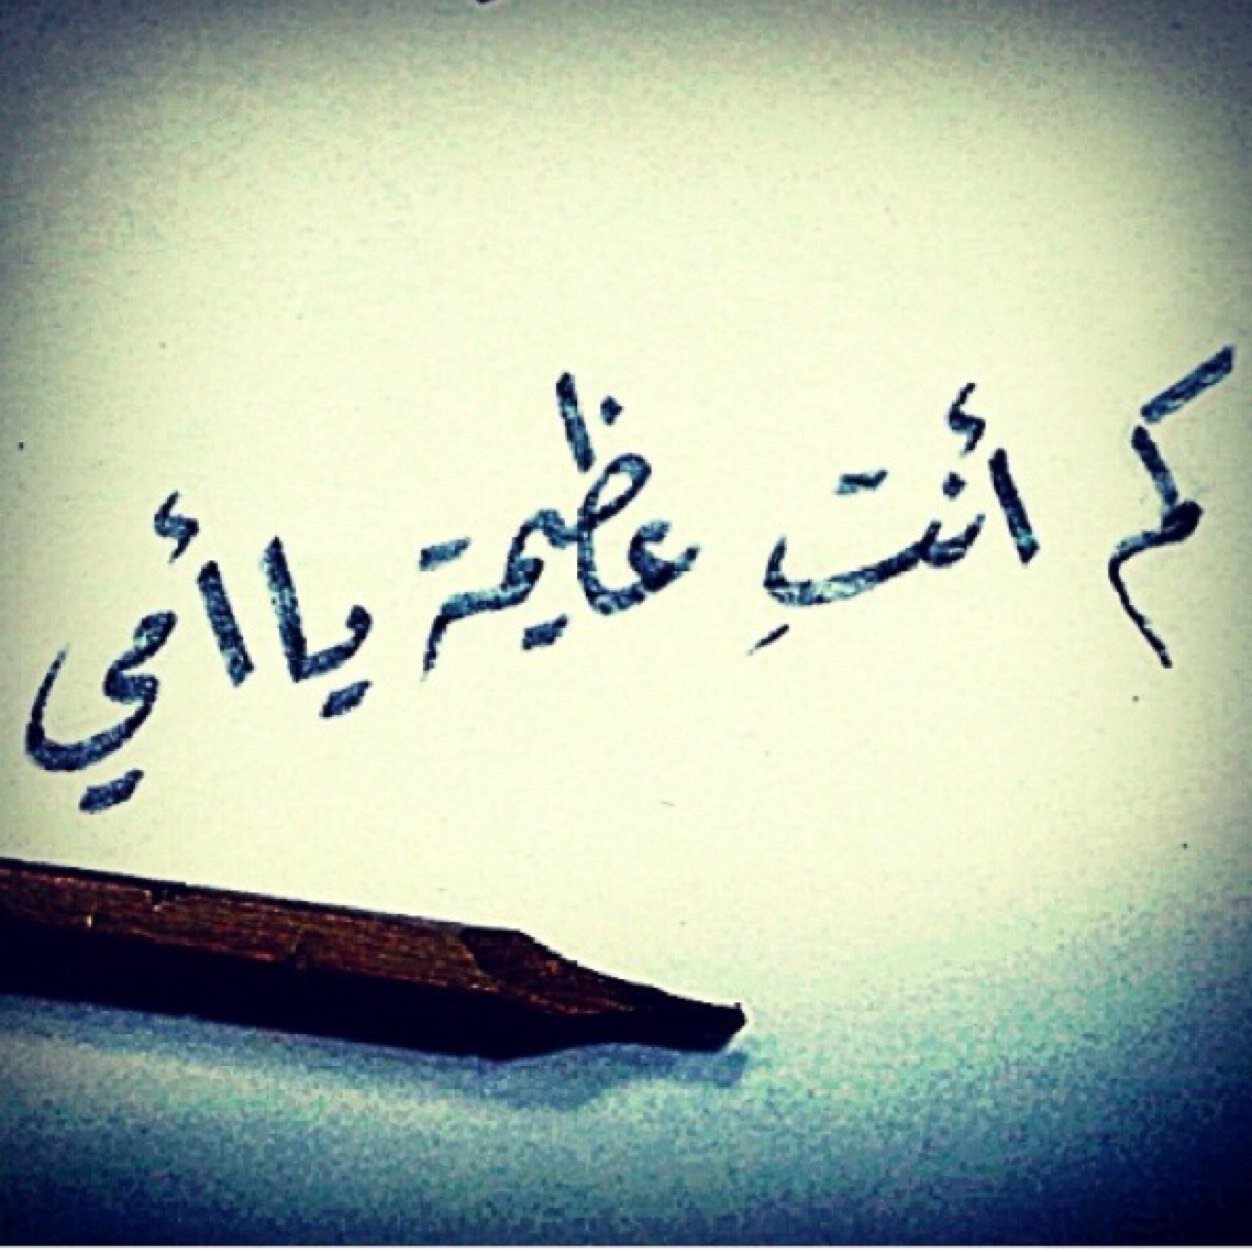 كم أنتِ عظيمة يا أمي